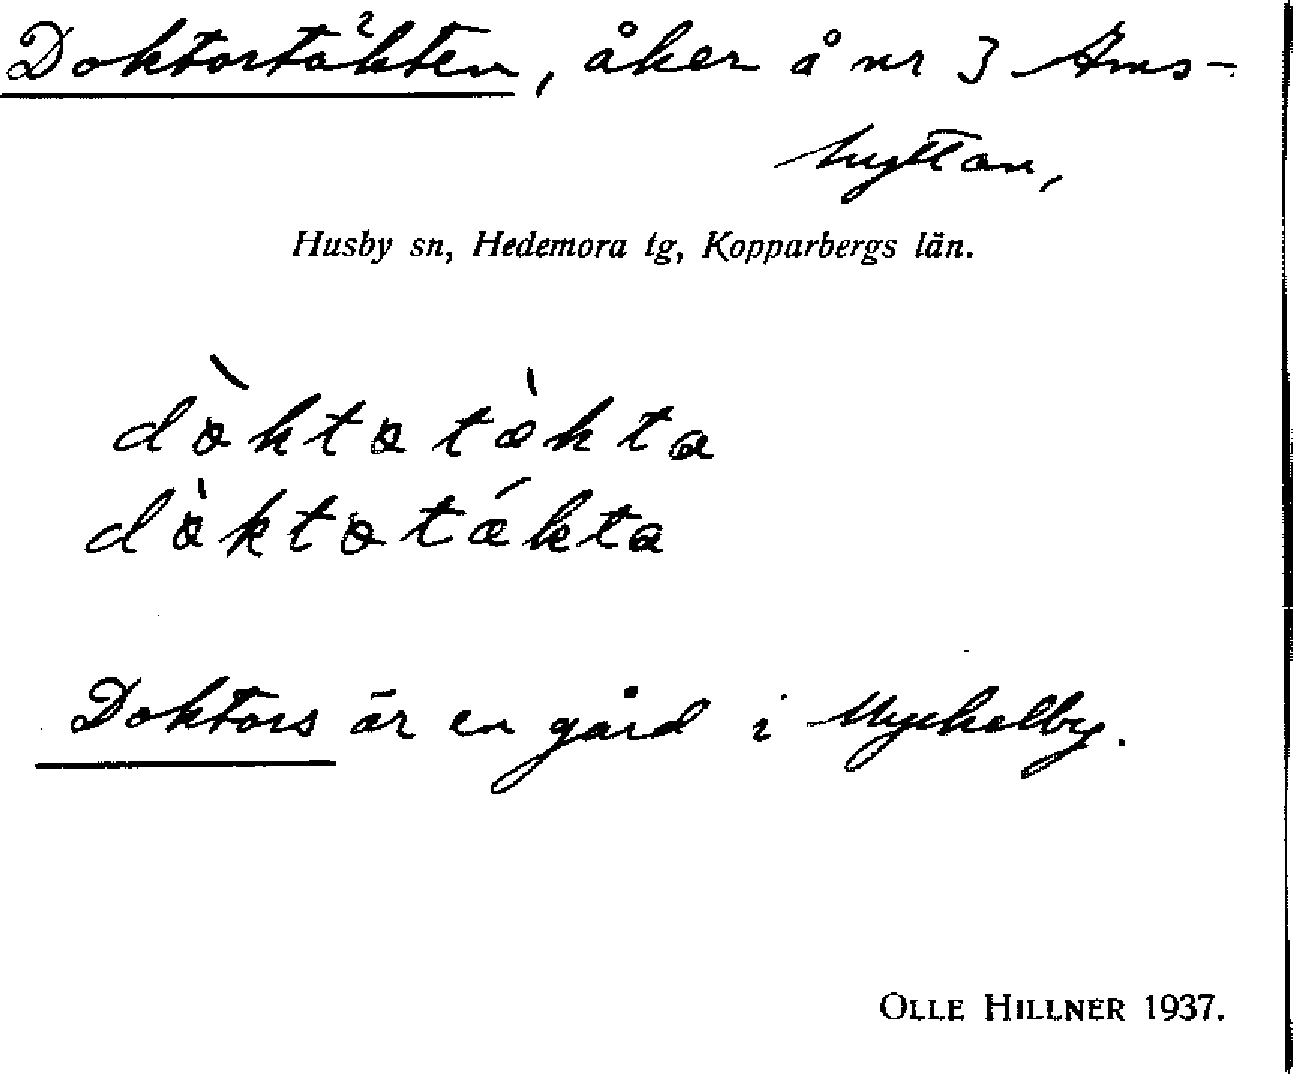 Doktortäkten, åker å nr 3 Ams-
hyttan,
Husby sn, Hedemora tg, Kopparbergs län.
dòktotæ̀kta
dòktotǽkta
Doktors är en gård i Myckelby.
OLLE HILLNER 1937.